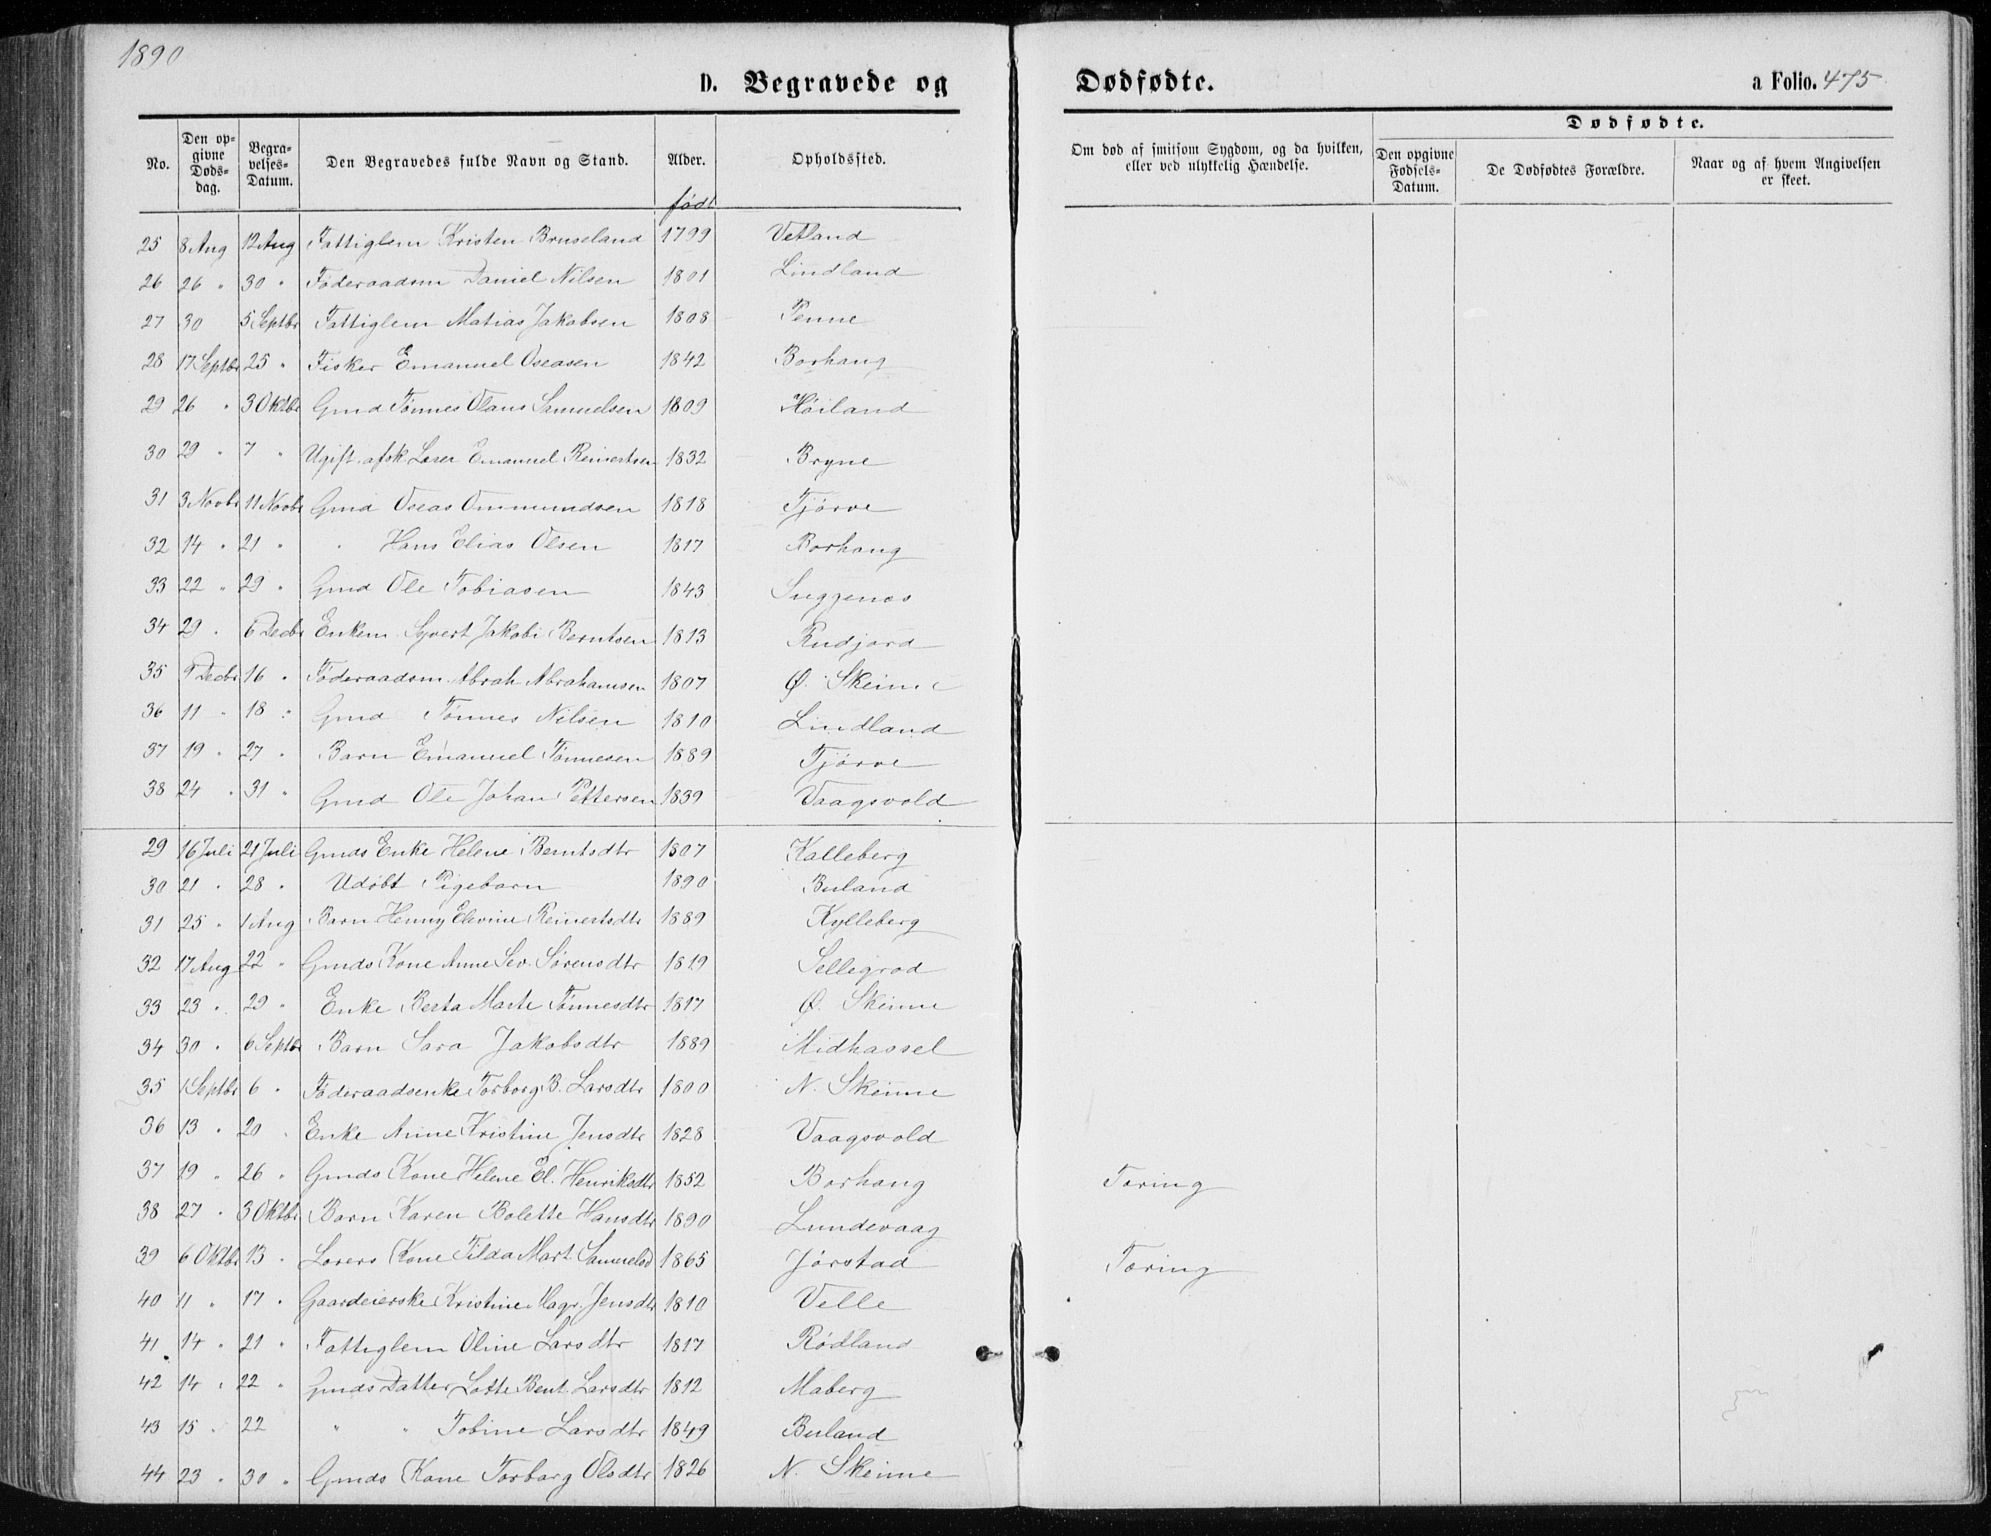 1890
D. Begravede og Dødfødte. a Folio. 475
Dødfødte.
No. Den opgivne Døds-dag. Begravelses-Datum. Den Begravedes fulde Navn og Stand. Alder. Opholdssted. Om død af smitsom Sygdom, og da hvilken, eller ved ulykkelig Hændelse. Den opgivne Fødsels-Datum. De Dødfødtes Forældre. Naar og af hvem Angivelsen er skeet.
født
25 8 Aug 12 Aug Fattiglem Kristen Bruseland 1799 Vetland
26 26 " 30 " Føderaadsm Daniel Nilsen 1801 Lindland
27 30 5 Septbr Fattiglem Matias Jakobsen 1808 Penne
28 17 Septbr 25 " Fisker Emanuel Oseasen 1842 Borhaug
29 26 " 3 Oktbr Gmd Tønnes Olaus Samuelsen 1809 Høiland
30 29 " 7 " Ugift afsk. Loser Emanuel Reinertsen 1832 Bryne
31 3 Novbr 11 Novbr Gmd Oseas Ommundsen 1818 Tjørve
32 14 " 21 " " Hans Elias Olsen 1817 Borhaug
33 22 " 29 " Gmd Ole Tobiasen 1843
34 29 " 6 Decbr Enkem. Syvert Jakobi Berntsen 1813 Rudjord
35 9 Decbr 16 " Føderaadsm. Abrah Abrahamsen 1807 Ø. Skeime
36 11 " 18 " Gmd Tønnes Nilsen 1810 Lindland
37 19 " 27 " Barn Emanuel Tønnesen 1889 Tjørve
38 24 " 31 " Gmd Ole Johan Pettersen 1839 Vaagsvold
29 16 Juli 21 Juli Gmds Enke Helene Berntsdtr 1807 Kalleberg
30 21 " 28 " Udøbt Pigebarn 1890 Buland
31 25 " 1 Aug Barn Henny Elevine Reinertsdtr 1889 Kylleberg
32 17 Aug 22 " Gmds Kone Anne Sev. Sørensdtr 1819 Sellegrod
33 23 " 29 " Enke Berta Marte Tønnesdtr 1817 Ø. Skeime
34 30 " 6 Septbr Barn Sara Jakobsdtr 1889 Midhassel
35 1 Septbr 6 " Føderaadsenke Torborg B. Larsdtr 1800 N. Skeime
36 13 " 20 " Enke Anne Kristine Jensdtr 1828 Vaagsvold
37 19 " 26 " Gmds Kone Helene El. Henriksdtr 1852 Borhaug Tæring
38 27 " 3 Oktbr Barn Karen Bolette Hansdtr 1890 Lundevaag
39 6 Oktbr 13 " Losers Kone Tilda Mart. Samuelsd 1865 Jørstad Tæring
40 11 " 17 " Gaardeierske Kristine Magr. Jensdtr 1810 Velle
41 14 " 21 " Fattiglem Oline Larsdtr 1817 Rødland
42 14 " 22 " Gmds Datter Lotte Bent. Larsdtr 1812 Maberg
43 15 " 22 " " Tobine Larsdtr 1849 Buland
44 23 " 30 " Gmds Kone Torborg Olsdtr 1826 N. Skeime